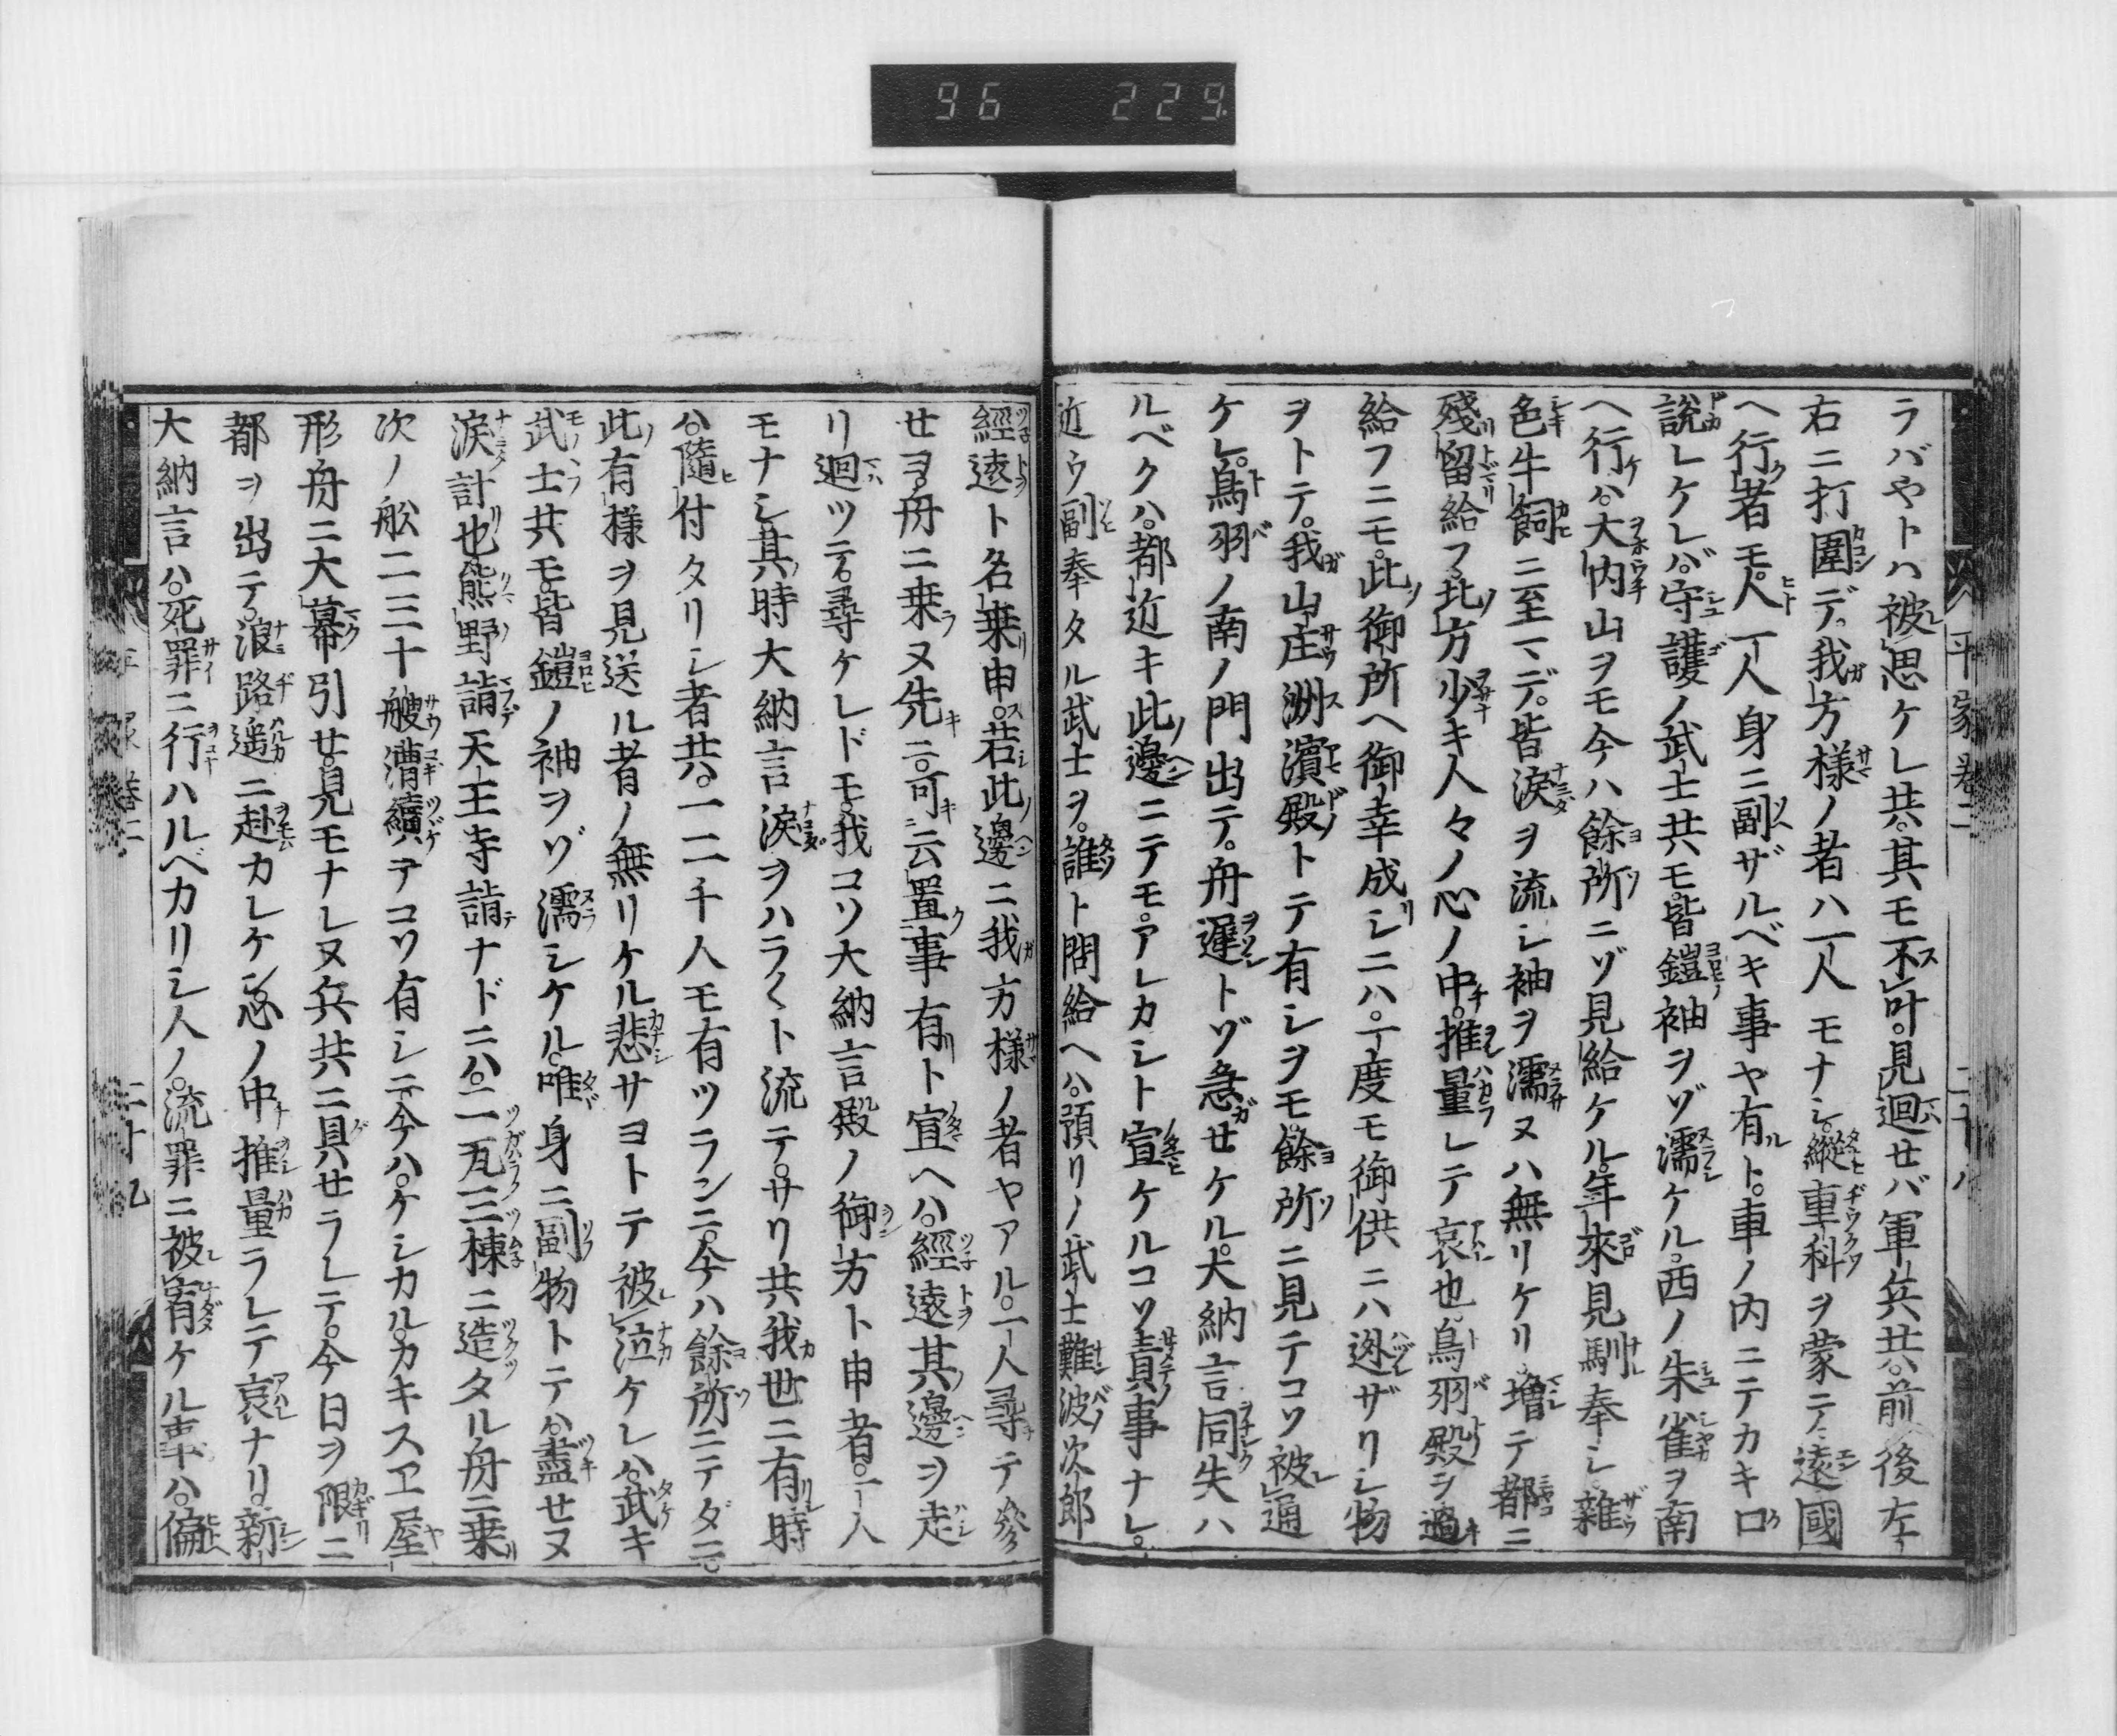 96 229.
ラバヤトハ被思ケレ共其モ不叶見廻セバ軍兵共ハ前後左
右ニ打圍デ我方様ノ者ハ一人モナシ縦重科ヲ蒙ニテ遠國
ヘ行者モ人一人身ニ副ザルベキ事ヤ有ト車ノ内ニテカキロ
説レケレバ守護ノ武士共モ皆鎧袖ヲゾ濡ケル西ノ朱雀ヲ南
ヘ行ケハ大内山ヲモ今ハ餘所ニゾ見給ケル年來見馴奉シ雑
色牛飼ニ至マデ皆涙ヲ流シ袖ヲ濡サヌハ無リケリ増テ都ニ
殘留給フ北方少キ人々ノ心ノ中推量レテ哀也鳥羽殿ヲ過
給フニモ此御所ヘ御幸成シニハ一度モ御供ニハ迯ザリシ物
ヲトテ我山庄洲濱殿トテ有シヲモ餘所ニ見テコソ被通
ケレ鳥羽ノ南ノ門出テ舟遲トゾ急ガセケル大納言同失ハ
ルベクハ都近キ此邊ニテモアレカシト宣ケルコソ責事ナレ
近ウ副奉タル武士ヲ誰ト問給ヘハ預リノ武士難波次郎
平家巻二 二十八
經遠ト名乗申若此邊ニ我方様ノ者ヤアル一人尋テ參
セヨ舟ニ乗ヌ先ニ可云置事有ト宣ヘハ經遠其邊ヲ走
リ廻ツテ尋ケレドモ我コソ大納言殿ノ御方ト申者一人
モナシ其時大納言涙ヲハラ〱ト流テサリ共我世ニ有シ時
ハ隨付タリシ者共一二千人モ有ツランニ今ハ餘所ニテダニ
此有様ヲ見送ル者ノ無リケル悲サヨトテ被泣ケレハ武キ
武士共モ皆鎧ノ袖ヲゾ濡シケル唯身ニ副物トテハ盡セヌ
涙計也熊野詣天王寺詣ナドニハ二瓦三棟ニ造タル舟ニ乗
次ノ舩二三十艘漕續テコソ有シニ今ハケシカルカキスヱ屋
形舟ニ大幕引セ見モナレヌ兵共ニ具セラレテ今日ヲ限ニ
都ヲ出テ浪路遥ニ赴カレケン心ノ中推量ラレテ哀ナリ新
大納言ハ死罪ニ行ハルベカリシ人ノ流罪ニ被宥ケル事ハ偏
平家巻二 二十九